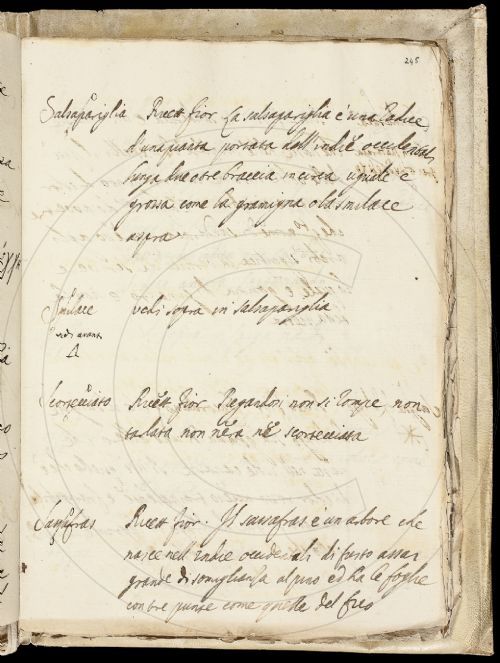 245
Salsapariglia Ricett. fior. La salsapariglia è una radice
d'una pianta portata dall'indie occidentali,
lunga due o tre braccia incirca uguale e
grossa come la gramigna o la smilace
aspra
Smilace vedi sopra in salsapariglia
vedi avanti
A
Scortecciato Ricett. fior. Piegandosi non si rompe non
tarlata non nera nè scortecciata
Sassafras Ricett fior. Il sassafras è un arbore che
nasce nell'Indie occidentali di fusto assai
grande di somiglianza al pino ed ha le foglie
con tre punte come quelle del fico